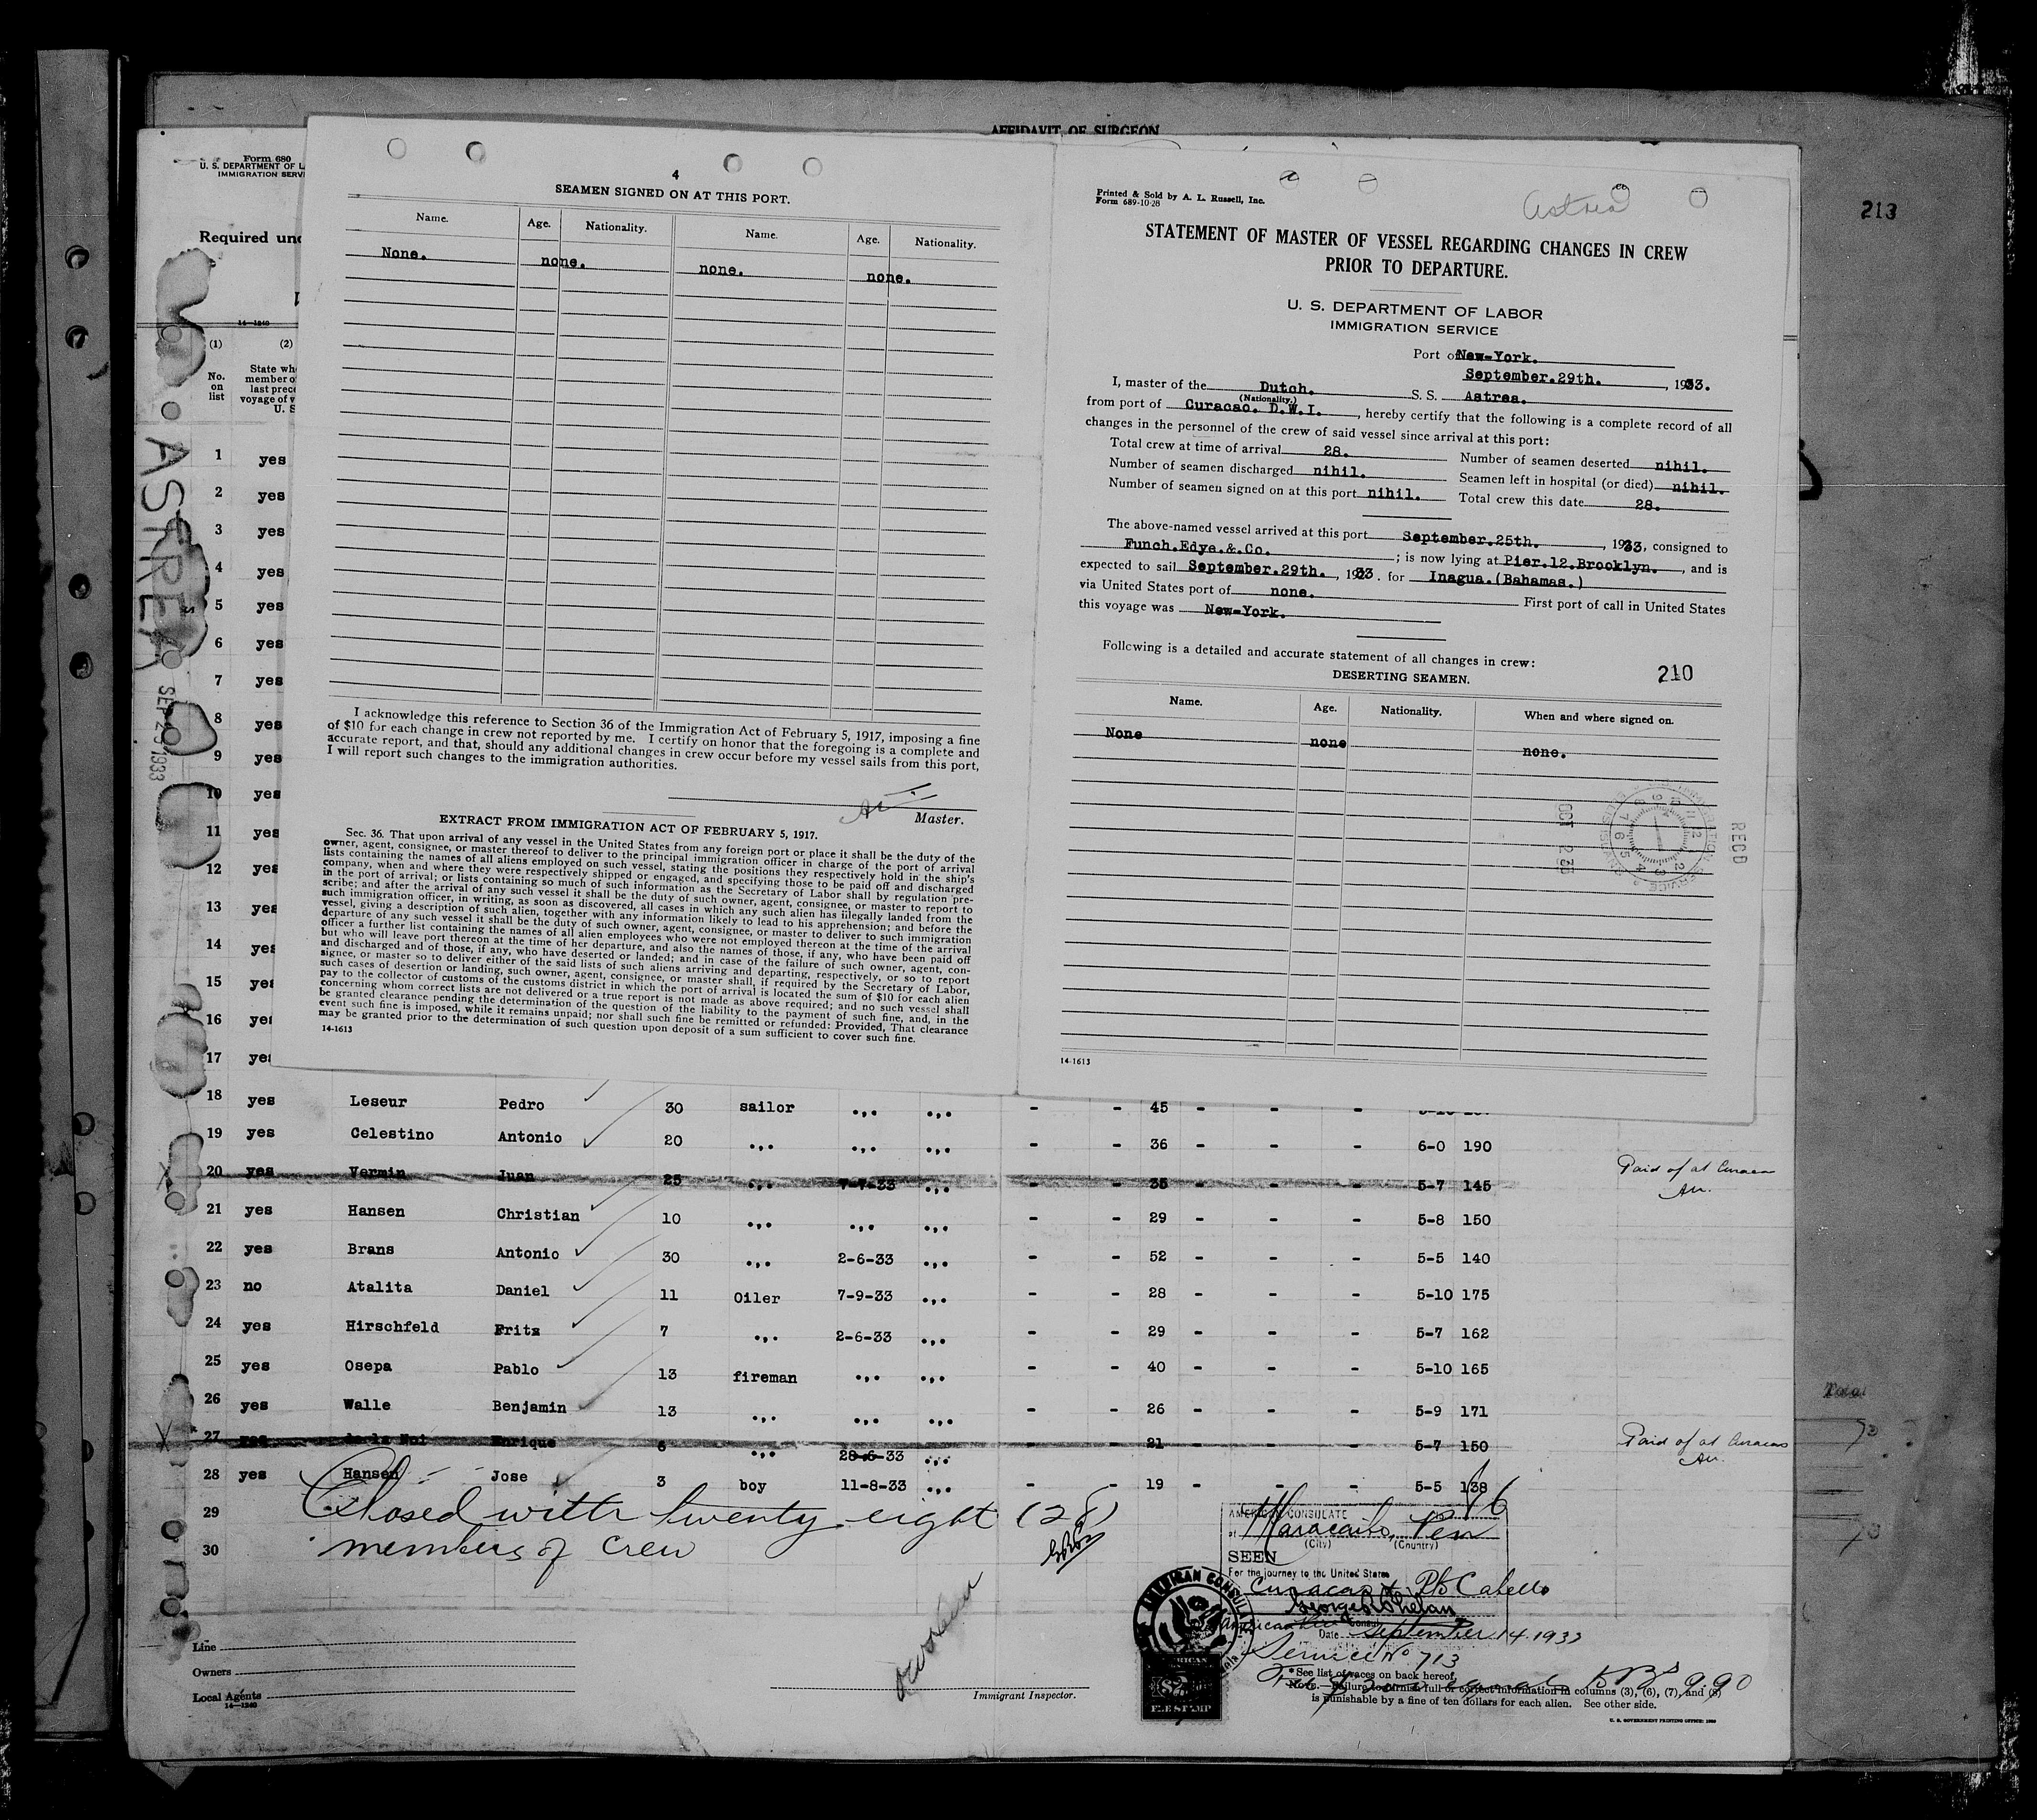 AFFIDAVIT OF SURGEON
213
Form 680
U. S. DEPARTMENT OF L
IMMIGRATION SERV
Required und
14—1240
(1) (2)
No. on list
State wh
member o
last prece
voyage of v
U. S
1 yes
2 yes
3 yes
4 yes
5 yes
6 yes
7 yes
8 yes
9 yes
10 yes
11 yes
12 yes
13 yes
14 yes
15 yes
16 yes
17 yes
ASTREA
SEP 25 1933
4
SEAMEN SIGNED ON AT THIS PORT.
Name. Age. Nationality. Name. Age. Nationality.
None. none. none. none.
I acknowledge this reference to Section 36 of the Immigration Act of February 5, 1917, imposing a fine
of $10 for each change in crew not reported by me. I certify on honor that the foregoing is a complete and
accurate report, and that, should any additional changes in crew occur before my vessel sails from this port,
I will report such changes to the immigration authorities.
Master.
EXTRACT FROM IMMIGRATION ACT OF FEBRUARY 5, 1917.
Sec. 36. That upon arrival of any vessel in the United States from any foreign port or place it shall be the duty of the
owner, agent, consignee, or master thereof to deliver to the principal immigration officer in charge of the port of arrival
lists containing the names of all aliens employed on such vessel, stating the positions they respectively hold in the ship's
company, when and where they were respectively shipped or engaged, and specifying those to be paid off and discharged
in the port of arrival; or lists containing so much of such information as the Secretary of Labor shall by regulation pre-
scribe; and after the arrival of any such vessel it shall be the duty of such owner, agent, consignee, or master to report to
such immigration officer, in writing, as soon as discovered, all cases in which any such alien has illegally landed from the
vessel, giving a description of such alien, together with any information likely to lead to his apprehension; and before the
departure of any such vessel it shall be the duty of such owner, agent, consignee, or master to deliver to such immigration
officer a further list containing the names of all alien employees who were not employed thereon at the time of the arrival
but who will leave port thereon at the time of her departure, and also the names of those, if any, who have been paid off
and discharged and of those, if any, who have deserted or landed; and in case of the failure of such owner, agent, con-
signee, or master so to deliver either of the said lists of such aliens arriving and departing, respectively, or so to report
such cases of desertion or landing, such owner, agent, consignee, or master shall, if required by the Secretary of Labor,
pay to the collector of customs of the customs district in which the port of arrival is located the sum of $10 for each alien
concerning whom correct lists are not delivered or a true report is not made as above required; and no such vessel shall
be granted clearance pending the determination of the question of the liability to the payment of such fine, and, in the
event such fine is imposed, while it remains unpaid; nor shall such fine be remitted or refunded: Provided, That clearance
may be granted prior to the determination of such question upon deposit of a sum sufficient to cover such fine.
14-1613
Printed & Sold by A. L. Russell, Inc.
Form 689-10-28
Astrea
STATEMENT OF MASTER OF VESSEL REGARDING CHANGES IN CREW
PRIOR TO DEPARTURE.
U. S. DEPARTMENT OF LABOR
IMMIGRATION SERVICE
Port of New-York.
September.29th., 1933.
I, master of the Dutch. S. S. Astrea.
(Nationality.)
from port of Curacao. D.W.I., hereby certify that the following is a complete record of all
changes in the personnel of the crew of said vessel since arrival at this port:
Total crew at time of arrival 28. Number of seamen deserted nihil.
Number of seamen discharged nihil. Seamen left in hospital (or died) nihil.
Number of seamen signed on at this port nihil. Total crew this date 28.
The above-named vessel arrived at this port September.25th., 1933, consigned to
Funch.Edye.&.Co. ; is now lying at Pier.12.Brooklyn., and is
expected to sail September.29th., 1933. for Inagua.(Bahamas.)
via United States port of none. First port of call in United States
this voyage was New-York.
Following is a detailed and accurate statement of all changes in crew:
210
DESERTING SEAMEN.
Name. Age. Nationality. When and where signed on.
None none none.
RECD
OCT 2 33
14-1613
18 yes Leseur Pedro 30 sailor .,. .,. - - 45 - - -
19 yes Celestino Antonio 20 .,. .,. .,. - - 36 - - - 6-0 190
20 yes Vermin Juan 25 .,. 7-7-33 .,. - - 35 - - - 5-7 145 Paid of at Curacao
21 yes Hansen Christian 10 .,. .,. .,. - - 29 - - - 5-8 150
22 yes Brans Antonio 30 .,. 2-6-33 .,. - - 52 - - - 5-5 140
23 no Atalita Daniel 11 Oiler 7-9-33 .,. - - 28 - - - 5-10 175
24 yes Hirschfeld Fritz 7 .,. 2-6-33 .,. - - 29 - - - 5-7 162
25 yes Osepa Pablo 13 fireman .,. .,. - - 40 - - - 5-10 165
26 yes Walle Benjamin 13 .,. .,. .,. - - 26 - - - 5-9 171
27 yes de la Noi Enrique 6 .,. 28-6-33 .,. - - 21 - - - 5-7 150 Paid of at Curacao
28 yes Hansen Jose 3 boy 11-8-33 .,. - - 19 - - - 5-5 138
29 Closed with twenty eight (28)
30 members of crew
AMERICAN CONSULATE
at Maracaibo, Ven
(City) (Country)
SEEN
For the journey to the United States
Curacao & Pto Cabello
George R Phelan
American Vice Consul
Date September 14 1933
Service No 713
Line
Owners
Local Agents
14—1240
Immigrant Inspector.
AMERICAN CONSULA
$2
FEE STAMP
*See list of races on back hereof.
NOTE.—Failure to furnish full or correct information in columns (3), (6), (7), and (8)
is punishable by a fine of ten dollars for each alien. See other side.
U. S. GOVERNMENT PRINTING OFFICE: 1933
Total